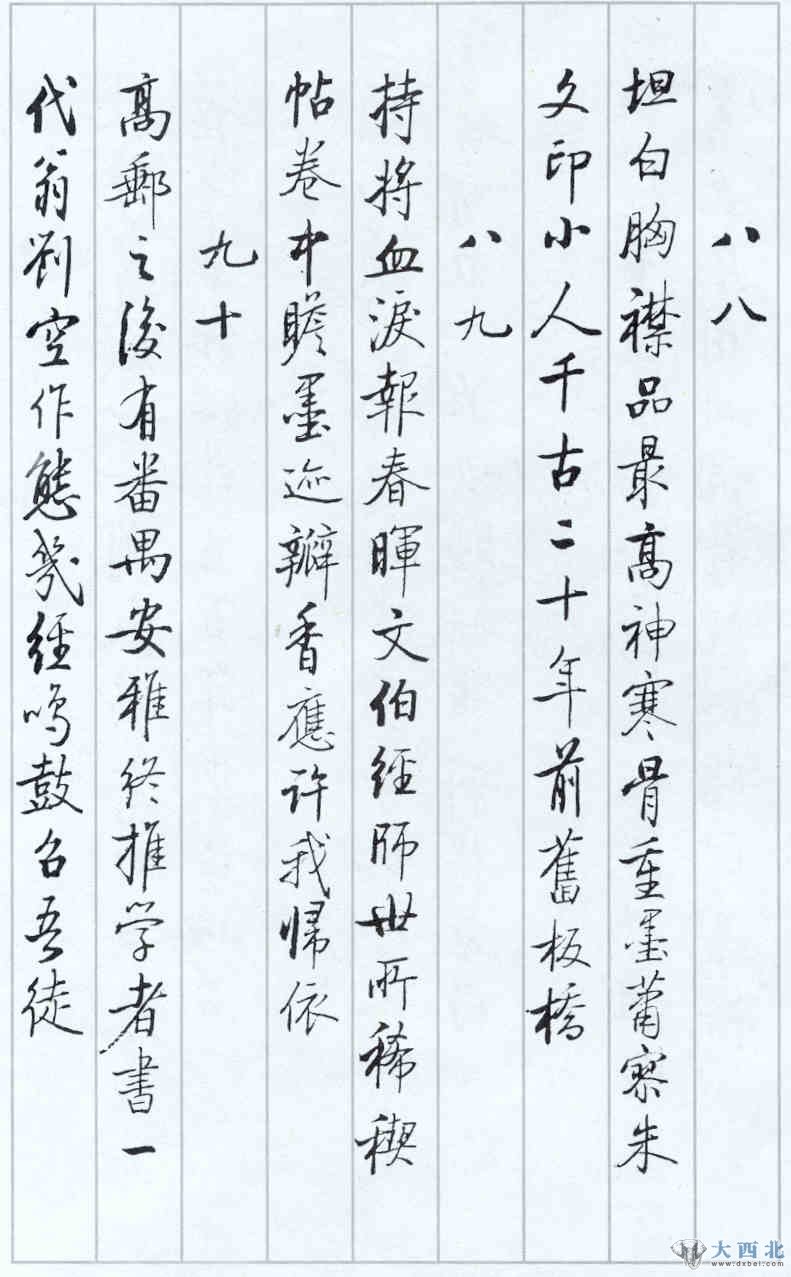 八八
坦白胸襟品最高神寒骨重墨蕭寥朱
文印小人千古二十年前舊板橋
八九
持將血淚報春暉文伯經師世所稀禊
帖卷中瞻墨迹瓣香應許我帰依
九十
高郵之後有番禺安雅終推学者書一
代翁刘空作態幾經鳴鼓召吾徒
大西北
www.dxbei.com